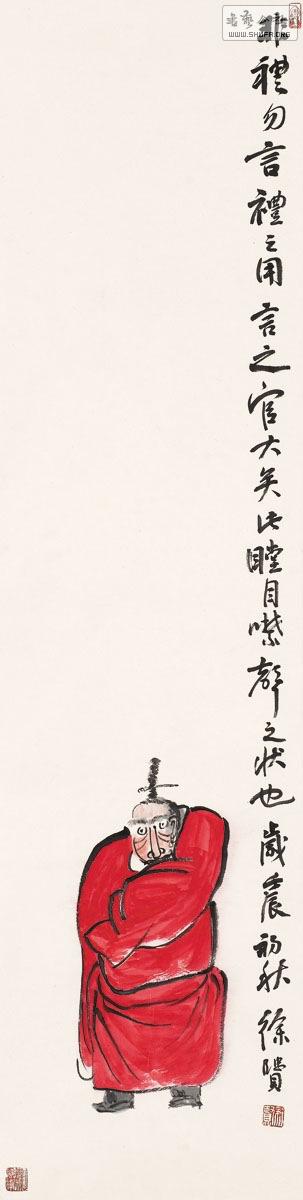 非禮勿言禮之用言之官大矣此瞠目噤聲之狀也歲壬辰初秋徐贲
WWW.SHUFA.ORG